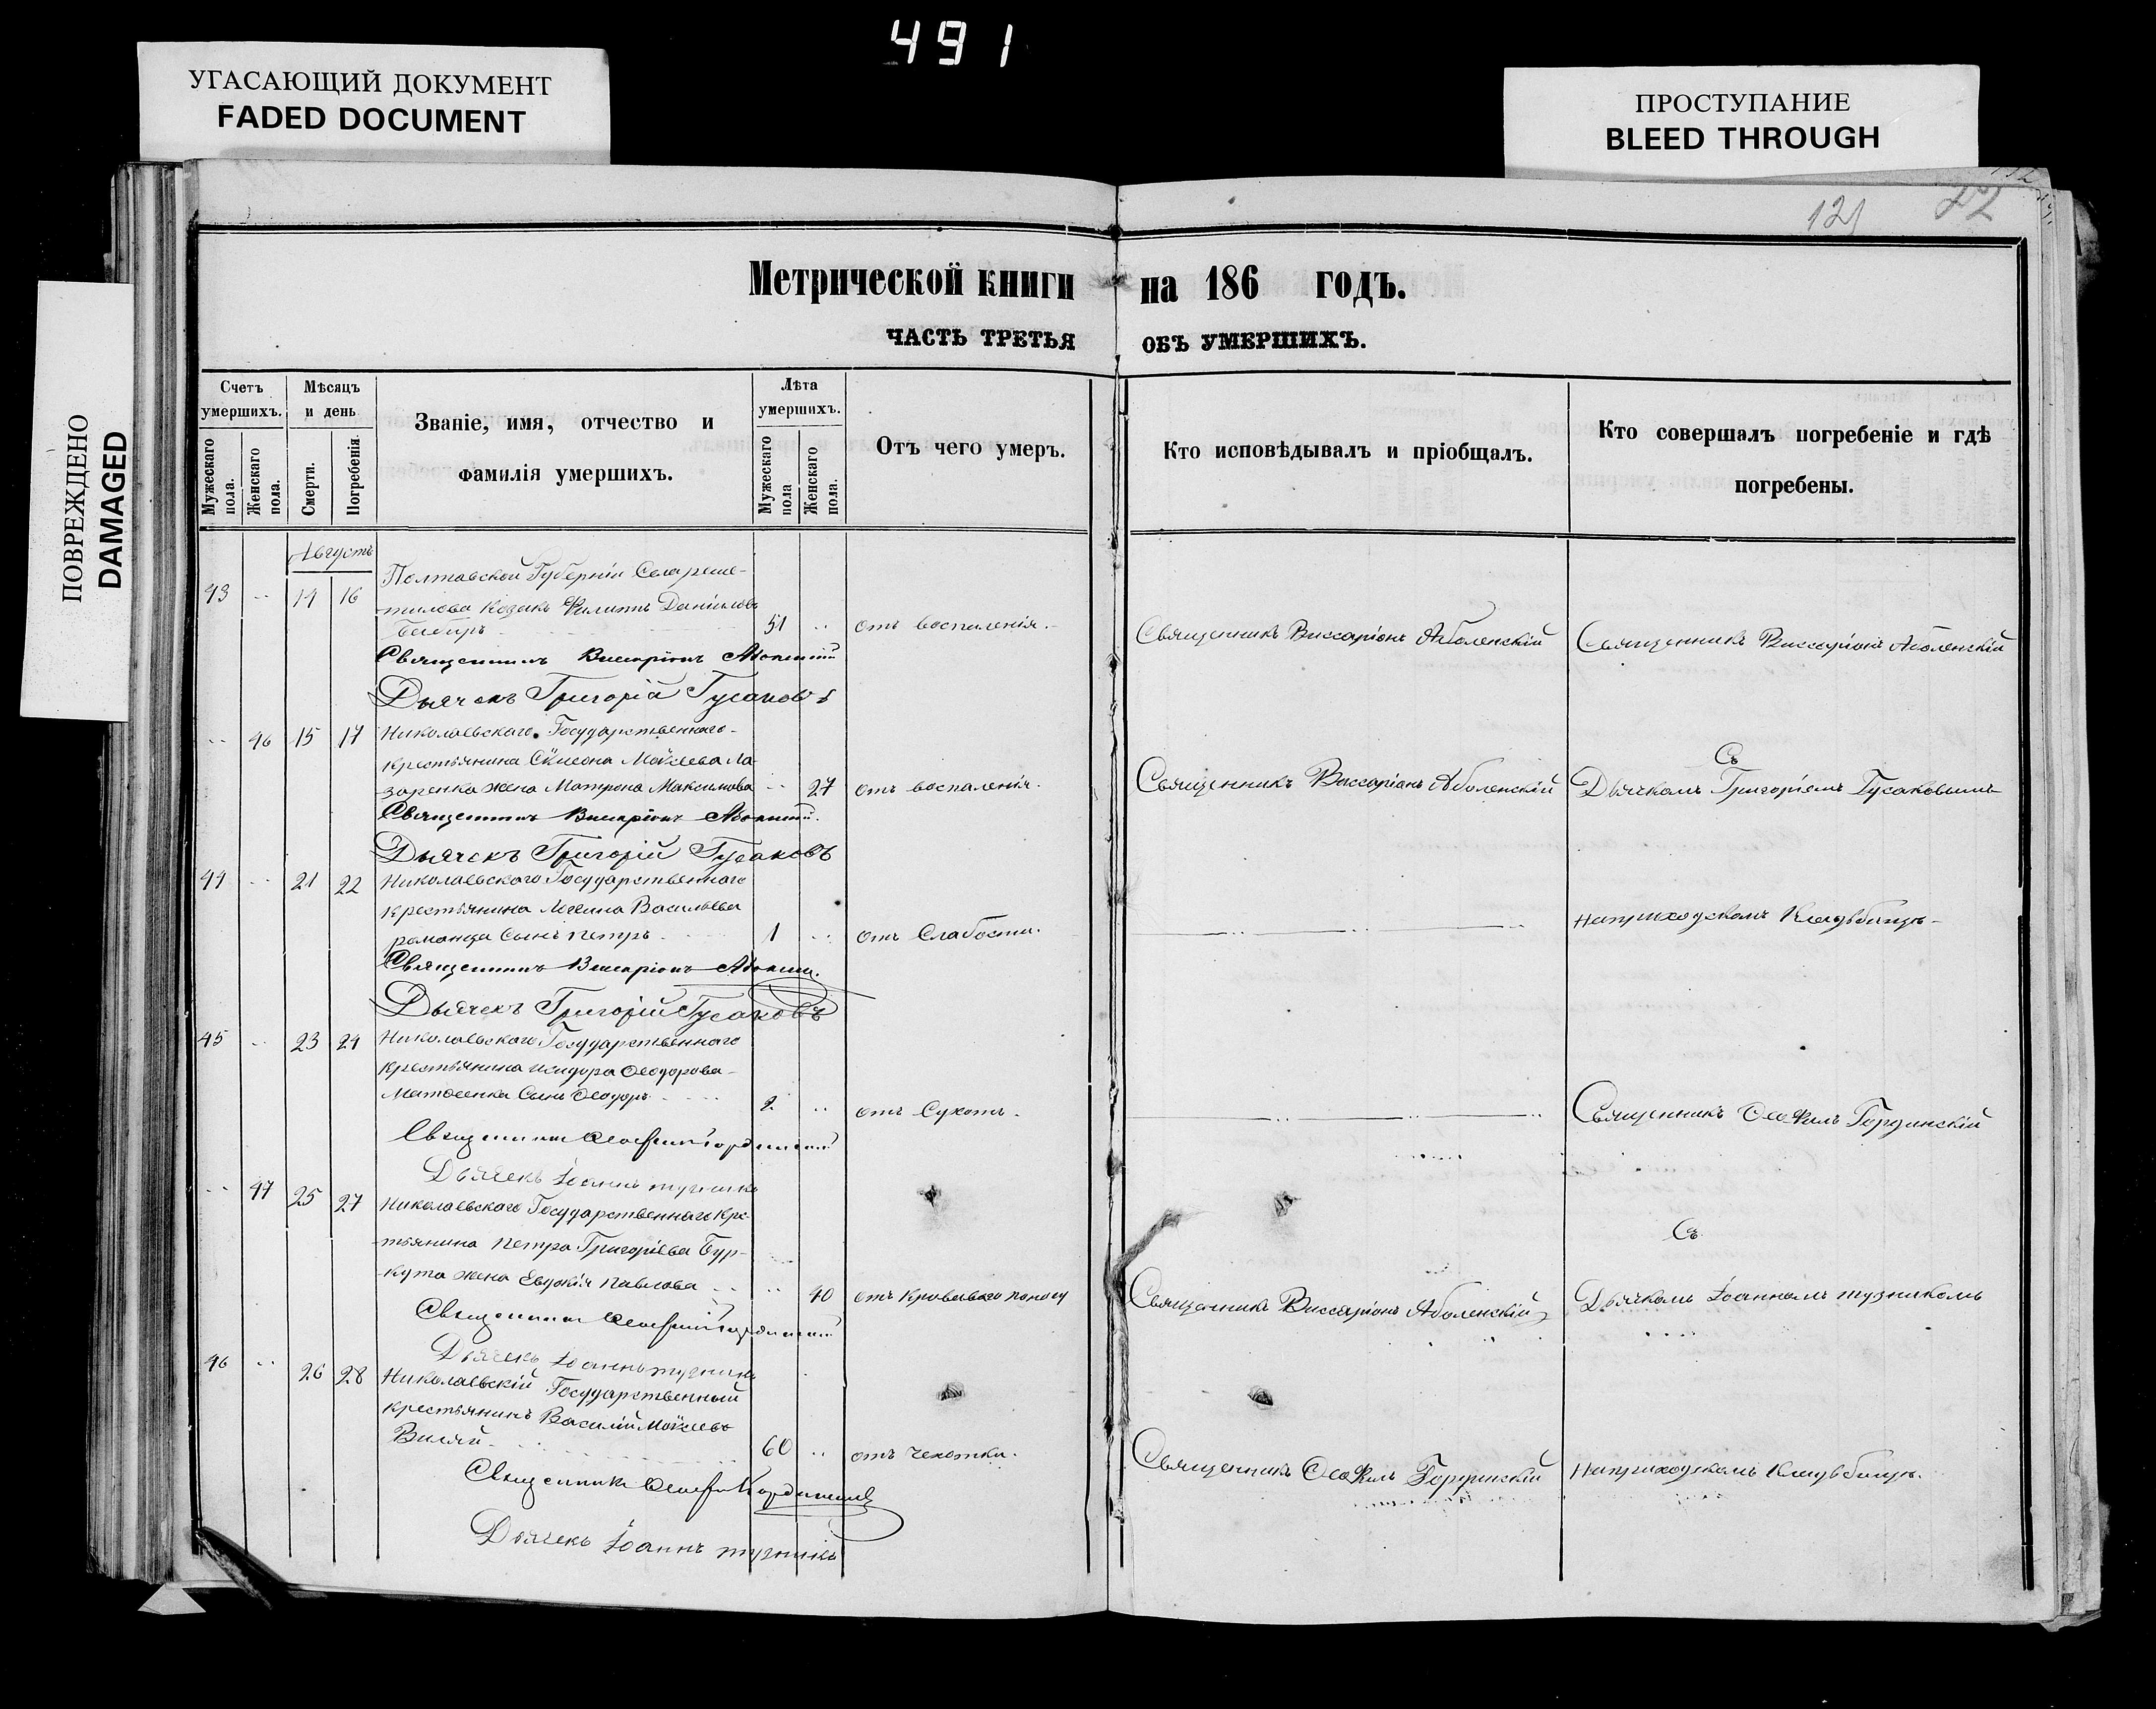 491
УГАСАЮЩИЙ ДОКУМЕНТ
FADED DOCUMENT
ПРОСТУПАНИЕ
BLEED THROUGH
ПОВРЕЖДЕНО
DAMAGED
121
22
Метрической книги на 186 годъ.
ЧАСТЬ ТРЕТЬЯ ОБЪ УМЕРШИХЪ.
Счетъ умершихъ.
Мужескаго пола.
Женскаго пола.
Мѣсяцъ и день
Смерти.
Погребенія.
Званіе, имя, отчество и
фамилія умершихъ.
Лѣта умершихъ.
Мужескаго пола
Женскаго пола.
Отъ чего умеръ.
Кто исповѣдывалъ и пріобщалъ.
Кто совершалъ погребеніе и гдѣ
погребены.
Августъ
Полтавской Губерніи Села реше-
43 .. 14 16
тилова Козакъ Филиппъ Даніиловъ
51 .. отъ воспаленія.
Священникъ Виссаріонъ Аболенскій
Священникъ Виссаріонъ Аболенскій
Священникъ Виссаріонъ
Дьячекъ Григорій Гусаковъ
.. 46 15 17 Николаевскаго Государственнаго
крестьянина Сѵмеона Моѵсеева Ла-
заренка жена Матрона Максимова .. 27 отъ воспаленія.
Священникъ Виссаріонъ Аболенскій
Съ
Дьячкомъ Григоріемъ Гусаковымъ
Священникъ Виссаріонъ
Дьячекъ Григорій Гусаковъ
44 .. 21 22 Николаевскаго Государственнаго
крестьянина Логина Васильева
романца Сынъ Петръ 1 .. отъ Слабости.
на приходскомъ Кладьбищѣ
Священникъ Виссаріонъ
Дьячекъ Григорій Гусаковъ
45 .. 23 24 Николаевскаго Государственнаго
крестьянина Исидора Ѳеодорова
Матвеенка Сынъ Ѳеодоръ 2 .. отъ Сухотъ.
Священникъ Ѳеофилъ Гординскій
Священникъ
Дьячекъ Іоаннъ
.. 47 25 27 Николаевскаго Государственнаго кре-
тьянина Петра Григоріева Бур-
кута жена Евдокія Павлова .. 40 отъ кроваваго поносу
Священникъ Виссаріонъ Аболенскій
Съ
Дьячкомъ Іоанномъ
Священникъ
Дьячекъ Іоаннъ
46 .. 26 28 Николаевскій Государственный
крестьянинъ Василій Моѵсеевъ
60 .. отъ чехотки.
Священникъ Ѳеофилъ Гординскій
На приходскомъ Кладьбищѣ.
Священникъ
Дьячекъ Іоаннъ